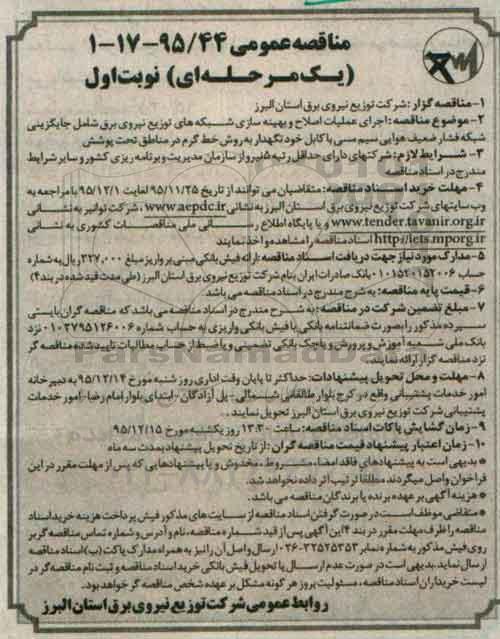 مناقصه عمومی ۹۵/۴۴-۱۷-۱
(یک مرحله‌ای) نوبت اول
۱-مناقصه گزار: شرکت توزیع نیروی برق استان البرز
۲-موضوع مناقصه: اجرای عملیات اصلاح و بهینه سازی شبکه های توزیع نیروی برق شامل جایگزینی
شبکه فشار ضعیف هوایی سیم مسی با کابل خود نگهدار به روش خط گرم در مناطق تحت پوشش
۳- شرایط لازم: شرکتهای دارای حداقل رتبه ۵ نیرو از سازمان مدیریت و برنامه ریزی کشور و سایر شرایط
مندرج در اسناد مناقصه
۴-مهلت خرید اسناد مناقصه: متقاضیان می توانند از تاریخ ۹۵/۱۱/۲۵ لغایت ۹۵/۱۲/۱ با مراجعه به
وب سایتهای شرکت توزیع نیروی برق استان البرز به نشانی www.aepdc.ir، شرکت توانیر به نشانی
www.tender.tavanir.org.ir و یا پایگاه اطلاع رسانی ملی مناقصات کشوری به نشانی
http://iets.mporg.ir اسناد مناقصه را مشاهده و اخذ نمایند
۵-مدارک مورد نیاز جهت دریافت اسناد مناقصه: ارائه فیش بانکی مبنی بر واریز مبلغ ۳۲۷,۰۰۰ ریال به شماره
حساب ۰۱۰۱۵۲۰۱۵۲۰۰۶ بانک صادرات ایران بنام شرکت توزیع نیروی برق استان البرز (طی مدت قید شده در بند۴)
۶-قیمت پایه مناقصه: به شرح مندرج در اسناد مناقصه می باشد
۷- مبلغ تضمین شرکت در مناقصه: به شرح مندرج در اسناد مناقصه می باشد که مناقصه گران بایستی
سپرده مذکور را بصورت ضمانتنامه بانکی یا فیش بانکی واریزی به حساب شماره ۰۱۰۳۷۹۵۱۲۶۰۰۶ نزد
بانک ملی شعبه آموزش و پرورش و یا چک بانکی تضمینی و یا ضبط از حساب مطالبات تایید شده مناقصه گر
نزد مناقصه گزار ارائه نمایند.
۸-مهلت و محل تحویل پیشنهادات: حداکثر تا پایان وقت اداری روز شنبه مورخ ۹۵/۱۲/۱۴ به دبیرخانه
امور خدمات پشتیبانی واقع در کرج بلوار طالقانی شمالی- پل آزادگان -ابتدای بلوار امام رضا- امور خدمات
پشتیبانی شرکت توزیع نیروی برق استان البرز تحویل نمایند.
۹-زمان گشایش پاکات اسناد مناقصه: ساعت ۱۳:۳۰ روز یکشنبه مورخ ۹۵/۱۲/۱۵
۱۰-زمان اعتبار پیشنهاد قیمت مناقصه گران: از تاریخ تحویل پیشنهاد بمدت سه ماه
* بدیهی است به پیشنهادهای فاقد امضاء، مشروط، مخدوش و یا پیشنهادهایی که پس از مهلت مقرر در این
فراخوان واصل میگردند مطلقا ترتیب اثر داده نخواهد شد.
* هزینه آگهی بر عهده برنده یا برندگان مناقصه می باشد.
* متقاضی موظف است در صورت گرفتن اسناد مناقصه از سایت های مذکور فیش پرداخت هزینه خرید اسناد
مناقصه را ظرف مهلت مقرر در بند ۴ این آگهی پس از قید شماره مناقصه، نام و آدرس و شماره تماس مناقصه گر بر
روی فیش مذکور به شماره نمابر ۳۲۵۲۵۳۵۳-۰۲۶ ارسال و اصل آن را نیز به همراه مدارک پاکت (ب) اسناد مناقصه
ارسال نماید. بدیهی است در صورت عدم ارسال یا تحویل فیش بانکی خرید اسناد مناقصه و ثبت نام مناقصه گر در
لیست خریداران اسناد مناقصه، مسئولیت بروز هر گونه مشکل بر عهده شخص مناقصه گر خواهد بود.
روابط عمومی شرکت توزیع نیروی برق استان البرز